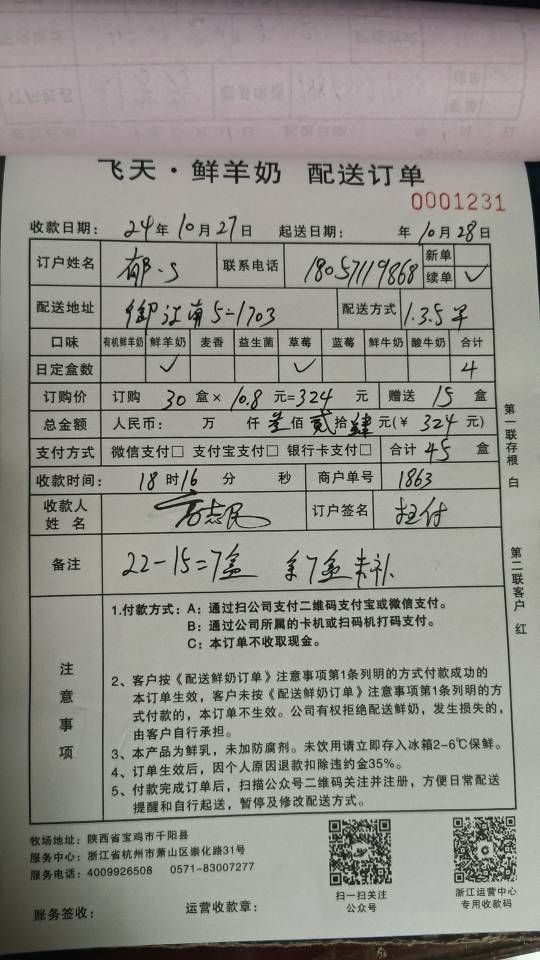 飞天·鲜羊奶 配送订单
0001231
收款日期： 24年10月27日 起送日期： 年10月28日
订户姓名 郁 联系电话 18057119868 新单
续单 ✓
配送地址 御江南5-1703 配送方式 1.3.5早
口味 有机鲜羊奶 鲜羊奶 麦香 益生菌 草莓 蓝莓 鲜牛奶 酸牛奶 合计
日定盒数 ✓ ✓ 4
订购价 订购 30 盒×10.8 元=324 元 赠送 15 盒
总金额 人民币： 万 仟 叁佰 贰拾 肆元(¥ 324 元)
支付方式 微信支付□ 支付宝支付□ 银行卡支付□ 合计 45 盒
收款时间： 18时16分 秒 商户单号 1863
收款人姓名 志民 订户签名 扫付
备注 22-15=7盒 7盒未补
注意事项
1.付款方式：A：通过扫公司支付二维码支付宝或微信支付。
B：通过公司所属的卡机或扫码机打码支付。
C：本订单不收取现金。
2、客户按《配送鲜奶订单》注意事项第1条列明的方式付款成功的
本订单生效，客户未按《配送鲜奶订单》注意事项第1条列明的方
式付款的，本订单不生效。公司有权拒绝配送鲜奶，发生损失的，
由客户自行承担。
3、本产品为鲜乳，未加防腐剂。未饮用请立即存入冰箱2-6℃保鲜。
4、订单生效后，因个人原因退款扣除违约金35%。
5、付款完成订单后，扫描公众号二维码关注并注册，方便日常配送
提醒和自行起送，暂停及修改配送方式。
第一联存根 白
第二联客户 红
牧场地址：陕西省宝鸡市千阳县
服务中心：浙江省杭州市萧山区崇化路31号
服务电话：4009926508 0571-83007277
扫一扫关注
公众号
浙江运营中心
专用收款码
账务签收： 运营收款章：